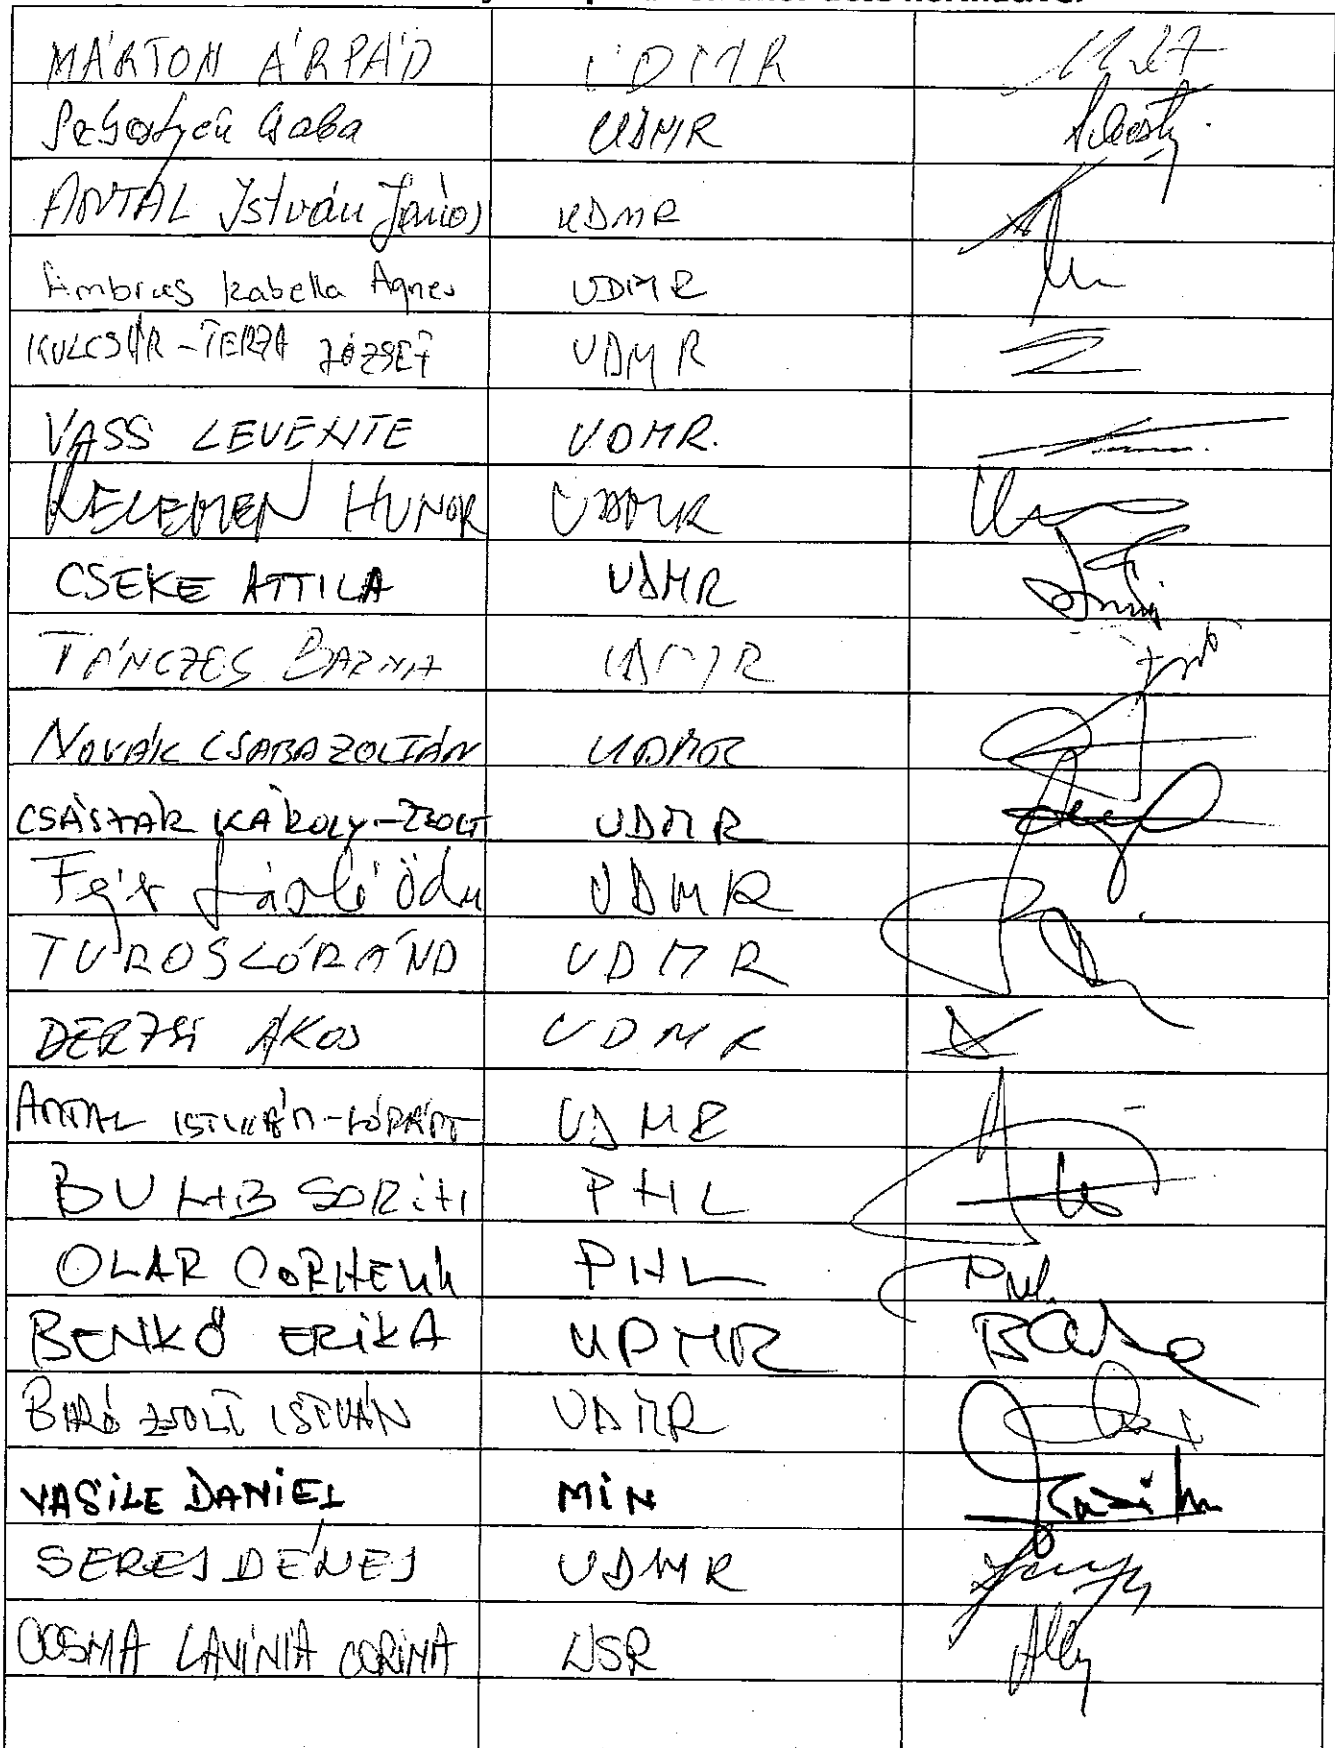 MÁRTON ÁRPÁD UDMR
Sebestyén Csaba UDMR
ANTAL István János UDMR
Ambrus Izabella Agnes UDMR
KULCSÁR-TERZA JÓZSEF UDMR
VASS LEVENTE UDMR.
KELEMEN HUNOR UDMR
CSEKE ATTILA UDMR
TÁNCZOS BARNA UDMR
NOVÁK CSABA ZOLTÁN UDMR
CSÁSZÁR KÁROLY-ZSOLT UDMR
Fejér László Ödön UDMR
TUROS LÓRÁND UDMR
DERZSI ÁKOS UDMR
ANTAL ISTVÁN-LÓRÁNT UDMR
BUMB SORIN PNL
OLAR CORNELIU PNL
BENKŐ ERIKA UDMR
BIRÓ ZSOLT ISTVÁN UDMR
VASILE DANIEL MIN
SERES DÉNES UDMR
COSMA LAVINIA CORINA USR